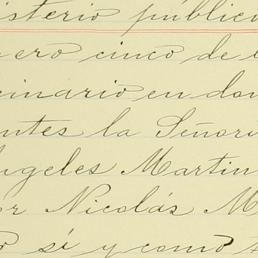 isterio público
ero cinco de
cinario en don
ntes la Señori
Angeles Martin
or Nicolás M
sí y como